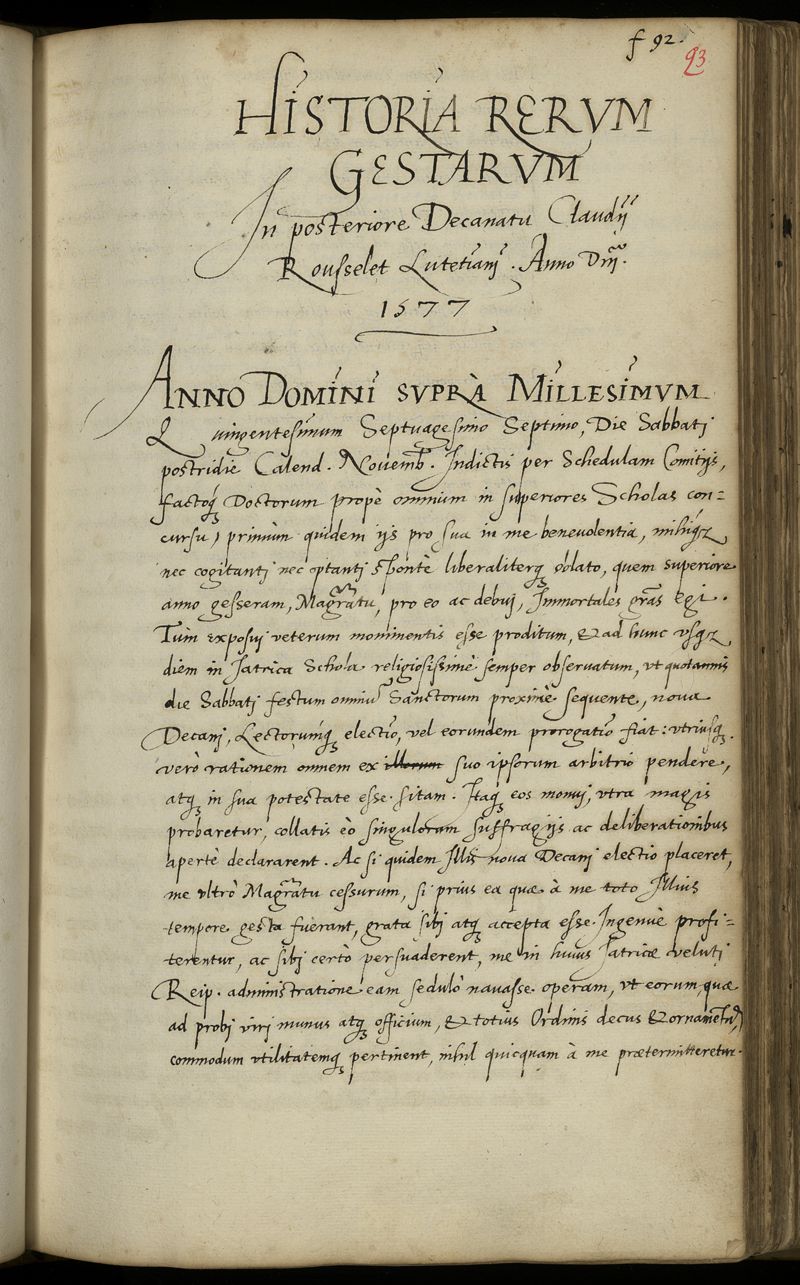 f 92.
93
HISTORIA RERVM
GESTARVM
In posteriore Decanatu Claudij
Rousselet Lutetianj. Anno Dnj.
1577
ANNO DOMINI SVPRÀ MILLESIMVM
Quingentesimum Septuagesimo Septimo, Die Sabbatj
postridie Calend. Nouemb. Indictis per Schedulam Comitijs,
factoq; Doctorum propè omnium in superiores Scholas con=
cursu, primùm quidem ijs pro sua in me beneuolentia, mihiq;
nec cogitantj nec optantj spontè liberaliterq; oblato, quem superiore
anno gesseram, Magratu, pro eo ac debuj, Immortales gras Egi.
Tum exposuj veterum monimentis esse proditum, & ad hunc vsq;
diem in Iatrica Schola religiosissimè semper obseruatum, vt quotannis
die Sabbatj festum omniu Sanctorum proximè sequente, noua
Decanj, Lectorumq; electio, vel eorundem prorogatio fiat: vtriusq;
verò rationem omnem ex illorum suo ipsorum arbitrio pendere,
atq; in sua potestate esse sitam. Itaq; eos monuj, vtra magis
probaretur, collatis eò singulorum suffragijs ac deliberationibus
apertè declararent. Ac si quidem Illis noua Decanj electio placeret,
me vltrò Magratu cessurum, si prius ea quæ à me toto Illius
tempore gesta fuerant, grata sibj atq; accepta esse Ingenuè profi=
terentur, ac sibj certò persuaderent, me in huius Iatricæ velutj
Reip. administratione eam sedulò nauasse operam, vt eorum, quæ
ad probj virj munus atq; officium, & totius Ordinis decus & ornamentu,
commodum vtilitatemq; pertinent, nihil quicquam à me prætermitteretur.